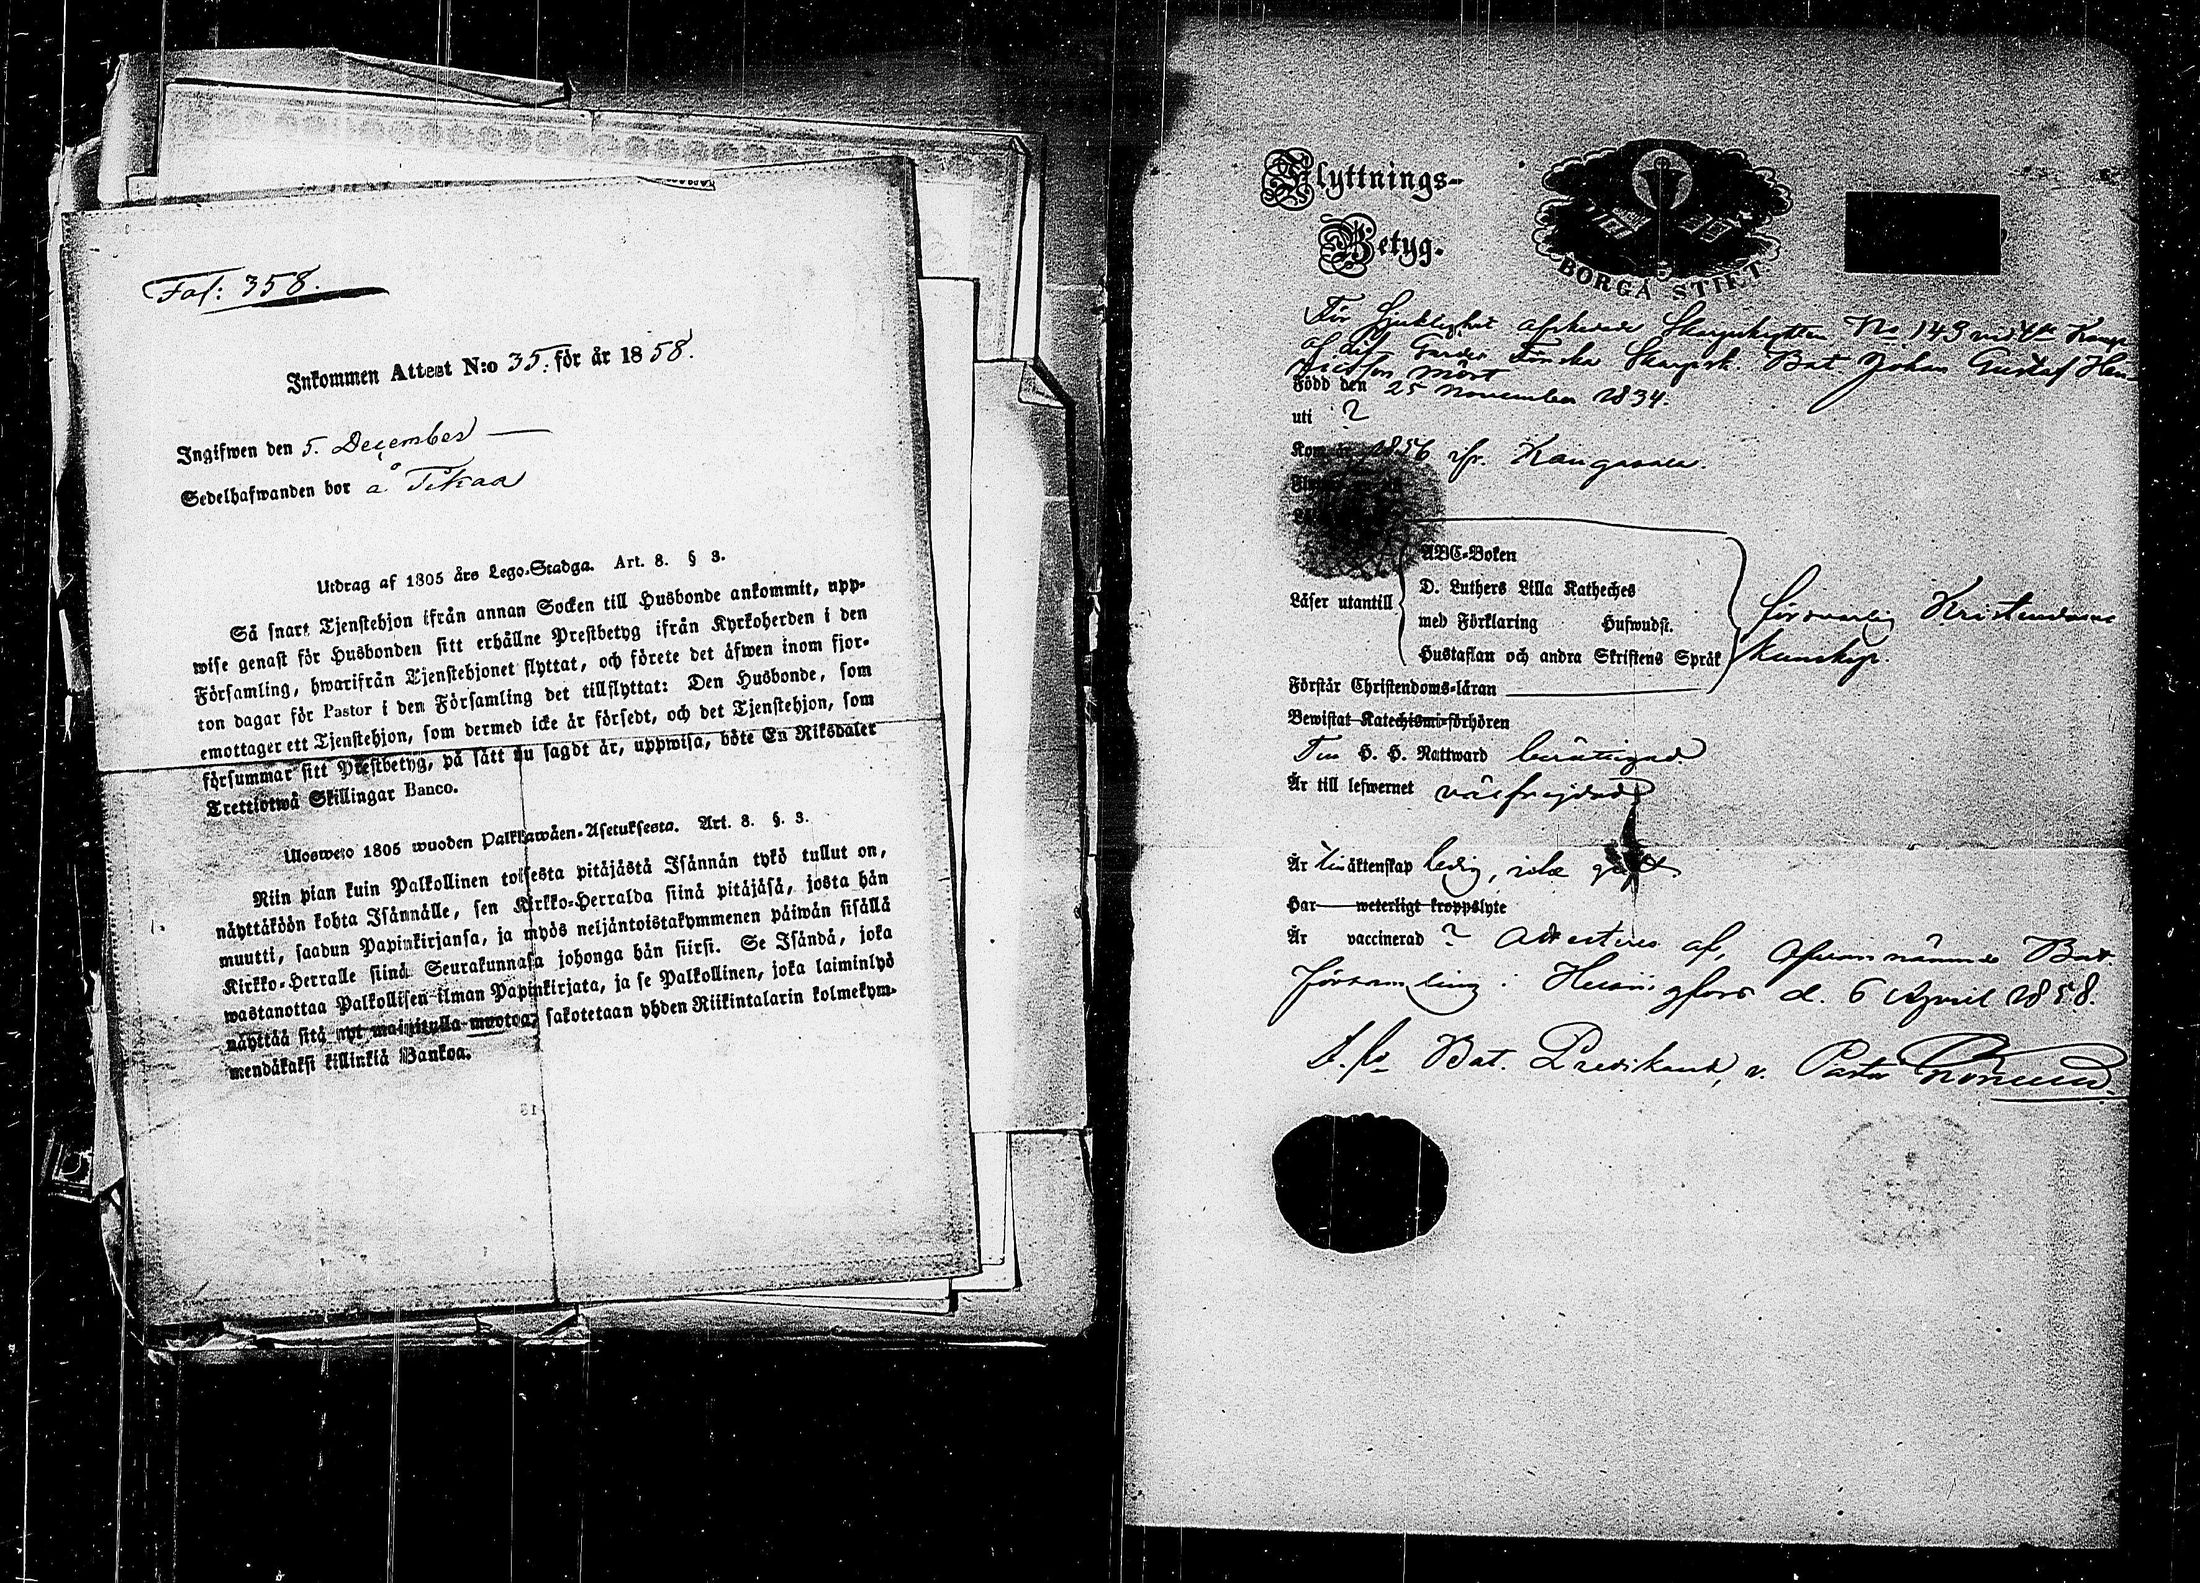 Fol: 358.
Inkommen Attest N:o 35. för år 1858.
Ingifwen den 5. December
Sedelhafwanden bor å Tikaa
Utdrag af 1805 års Lego-Stadga. Art. 8. § 3.
Så snart Tjenstehjon ifrån annan Socken till Husbonde ankommit, upp-
wise genast för Husbonden sitt erhållne Prestbetyg ifrån Kyrkoherden i den
Församling, hwarifrån Tjenstehjonet flyttat, och förete det äfwen inom fjor-
ton dagar för Pastor i den Församling det tillflyttat: Den Husbonde, som
emottager ett Tjenstehjon, som dermed icke är försedt, och det Tjenstehjon, som
försummar sitt Prestbetyg, på sätt nu sagdt är, uppwisa, böte En Riksdaler
Trettiotwå Skillingar Banco.
Ulosweto 1805 wuoden Palkkawäen-Asetuksesta. Art. 8. §. 3.
Niin pian kuin Palkollinen toisesta pitäjästä Isännän tykö tullut on,
näyttäköön kohta Isännälle, sen Kirkko-Herralda siinä pitäjäsä, josta hän
muutti, saadun Papinkirjansa, ja myös neljäntoistakymmenen päiwän sisällä
Kirkko-Herralle siinä Seurakunnasa johonga hän siirsi. Se Isändä, joka
wastanottaa Palkollisen ilman Papinkirjata, ja se Palkollinen, joka laiminlyö
näyttää sitä nyt mainitulla muotoa, sakotetaan yhden Riikintalarin kolmekym-
mendäkaksi killinkiä Bankoa.
Flyttnings-
Betyg.
BORGÅ STIFT
För Sjuklighet afskedade Skarpskytten No 143 vid 4de Komp
af Lif Gardes Finska Skarpsk. Bat. Johan Gustaf Hen-
ricson Mört
Född den 25 November 1834.
uti ?
Kom år 1856 ifr. Kangasala.
ABC-Boken
D. Luthers Lilla Katheches
Läser utantill
med Förklaring Hufwudst.
Hustaflan och andra Skriftens Språk
försvarlig Kristendoms
kunskap.
Förstår Christendoms-läran
Bewistat Katechismi-förhören
Till H. H. Nattward berättigad
Är till lefwernet välfrejdad
Är till äktenskap ledig, icke gift.
Har weterligt kroppslyte
Är vaccinerad ? Attesteras af, ofvannämnde Bat.
församling i Helsingfors d. 6 April 1858.
Bat. Predikant, v. Pastor